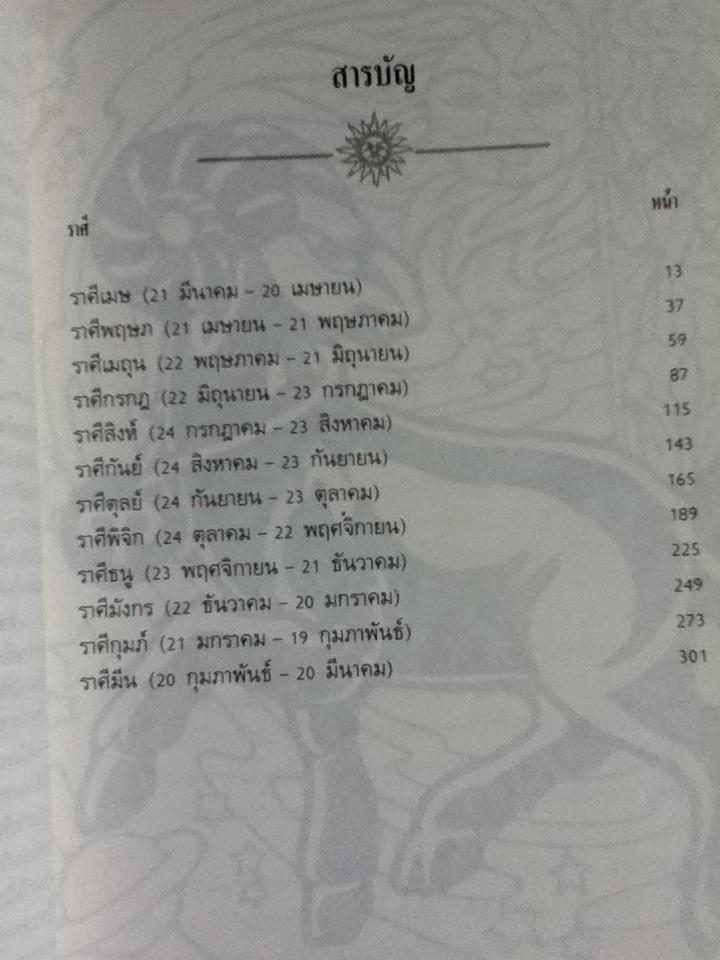 สารบัญ
ราศี หน้า
ราศีเมษ (21 มีนาคม – 20 เมษายน) 13
ราศีพฤษภ (21 เมษายน – 21 พฤษภาคม) 37
ราศีเมถุน (22 พฤษภาคม – 21 มิถุนายน) 59
ราศีกรกฎ (22 มิถุนายน – 23 กรกฎาคม) 87
ราศีสิงห์ (24 กรกฎาคม – 23 สิงหาคม) 115
ราศีกันย์ (24 สิงหาคม – 23 กันยายน) 143
ราศีตุลย์ (24 กันยายน – 23 ตุลาคม) 165
ราศีพิจิก (24 ตุลาคม – 22 พฤศจิกายน) 189
ราศีธนู (23 พฤศจิกายน – 21 ธันวาคม) 225
ราศีมังกร (22 ธันวาคม – 20 มกราคม) 249
ราศีกุมภ์ (21 มกราคม – 19 กุมภาพันธ์) 273
ราศีมีน (20 กุมภาพันธ์ – 20 มีนาคม) 301